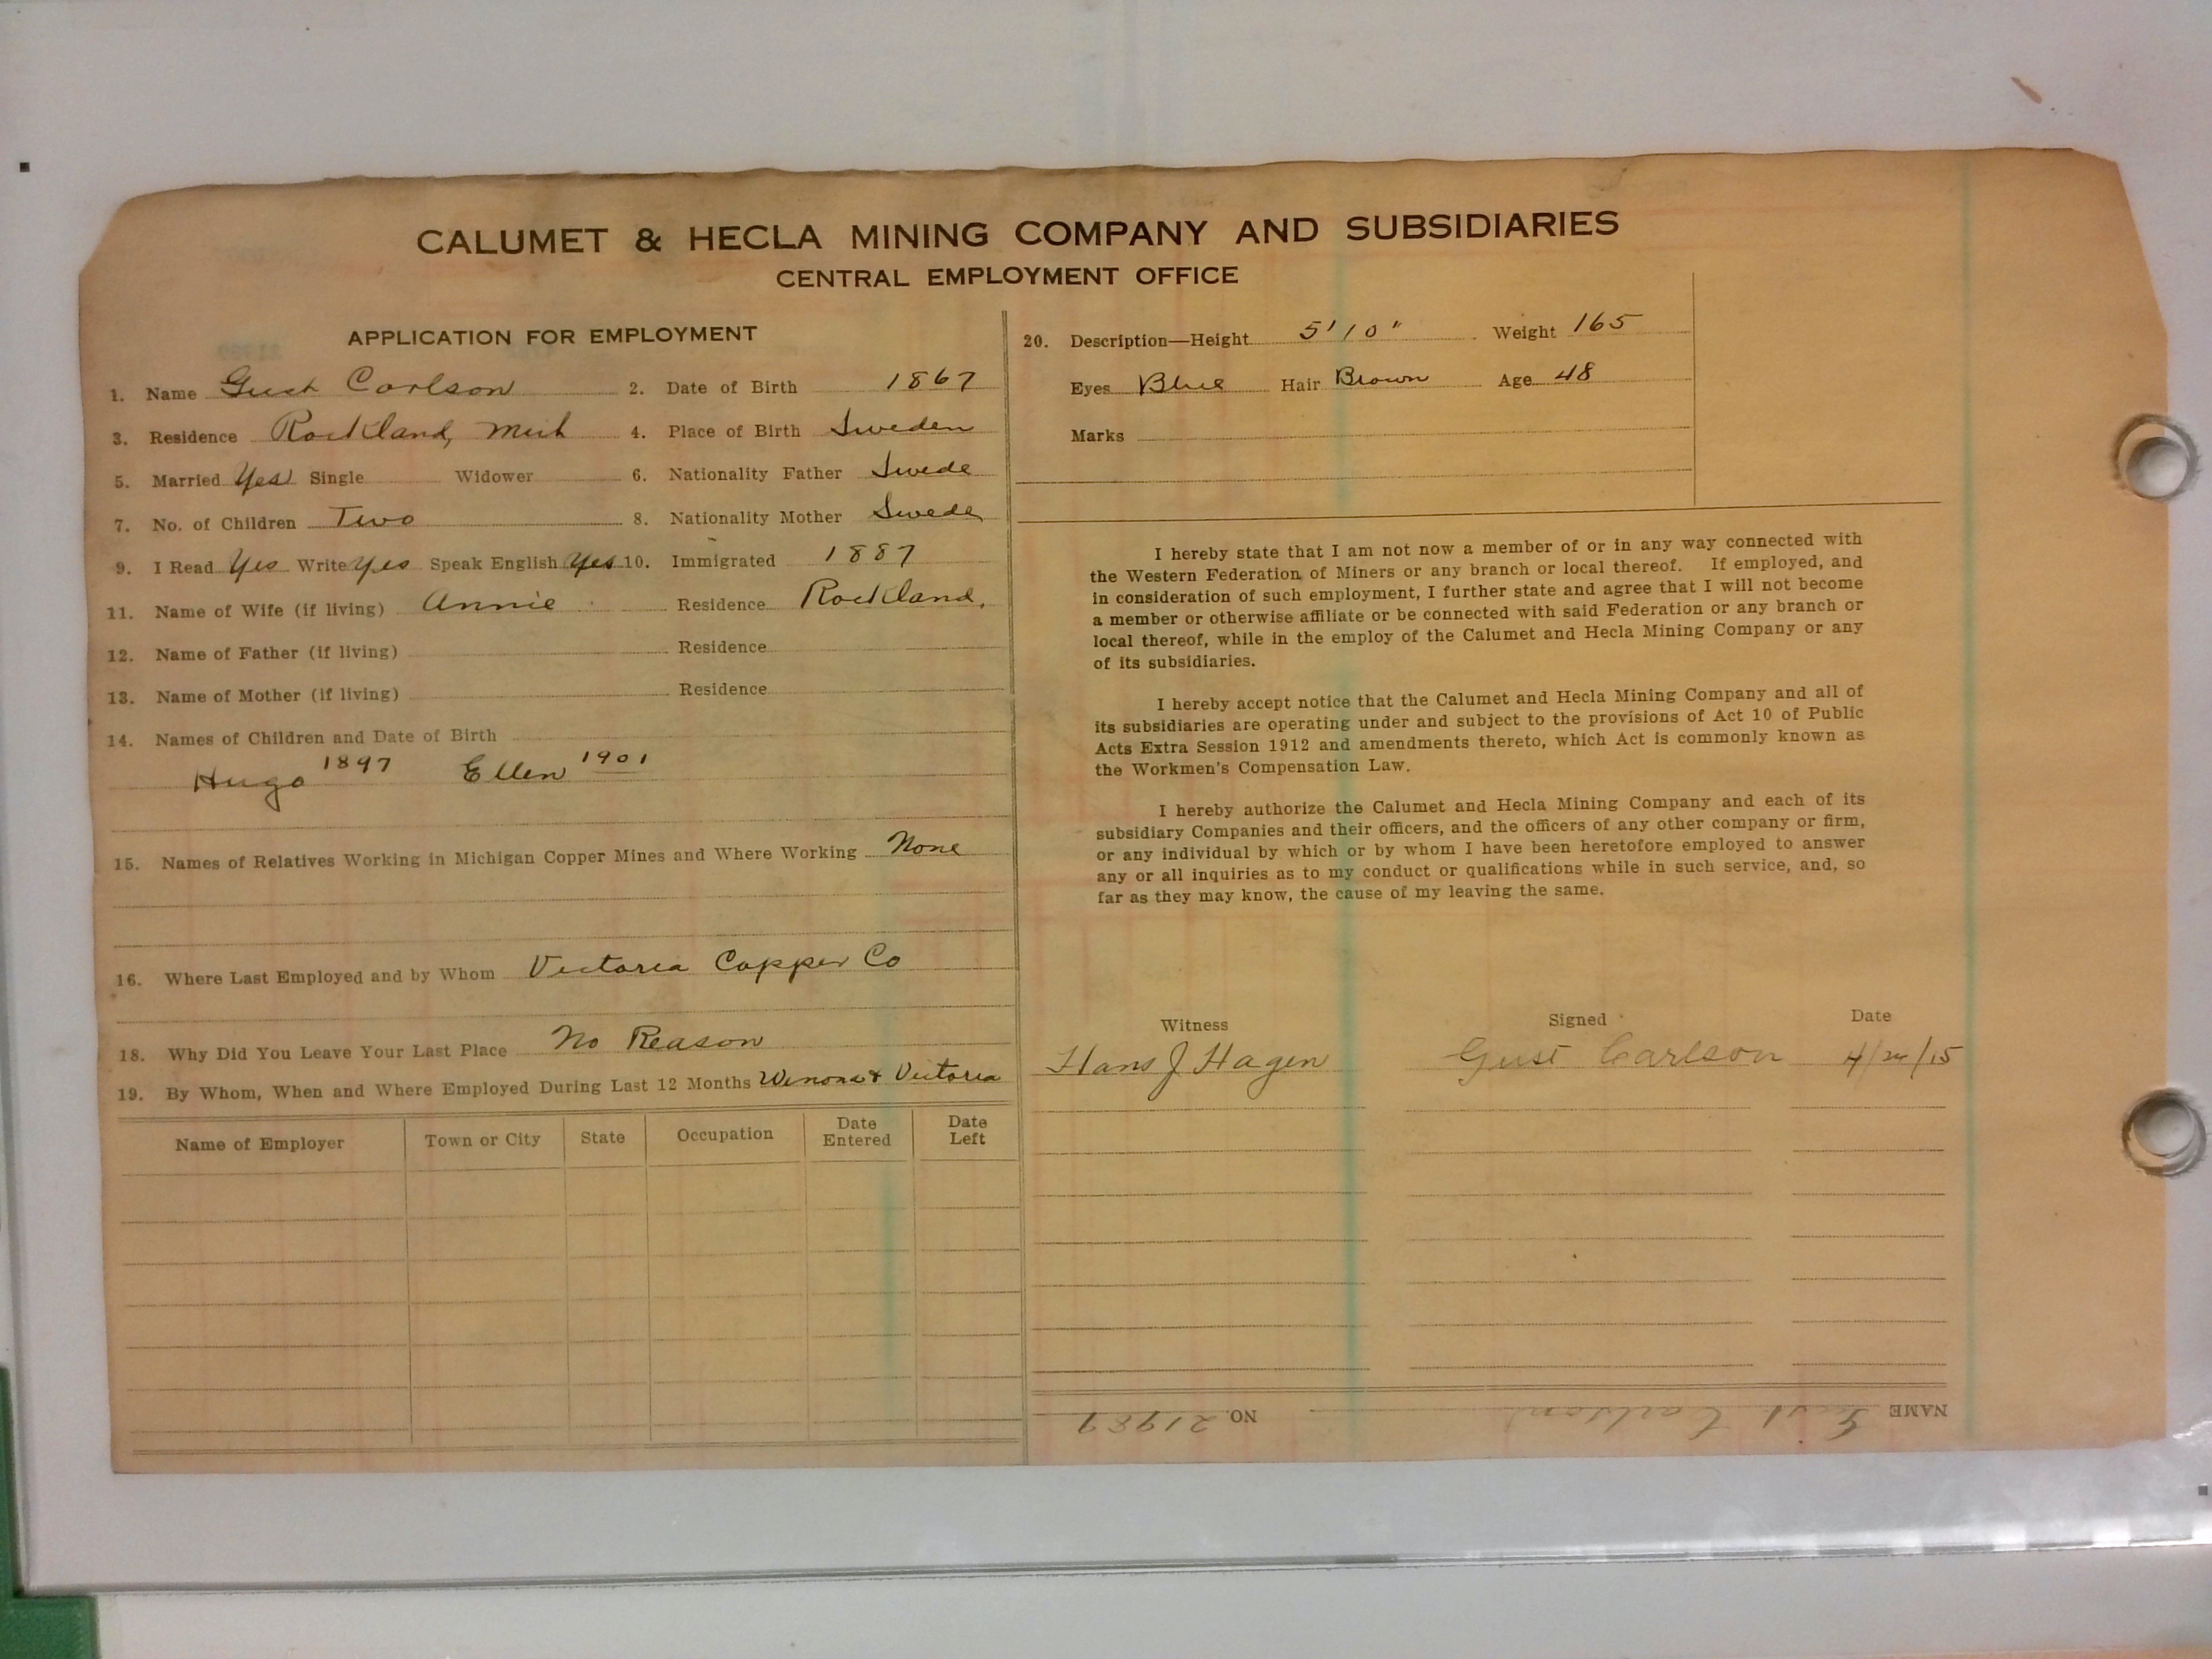 CALUMET & HECLA MINING COMPANY AND SUBSIDIARIES
CENTRAL EMPLOYMENT OFFICE
APPLICATION FOR EMPLOYMENT
1. Name Gust Carlson 2. Date of Birth 1867
3. Residence Rockland, Mich 4. Place of Birth Sweden
5. Married Yes Single Widower 6. Nationality Father Swede
7. No. of Children Two 8. Nationality Mother Swede
9. I Read Yes Write Yes Speak English Yes 10. Immigrated 1887
11. Name of Wife (if living) Annie Residence Rockland.
12. Name of Father (if living) Residence
13. Name of Mother (if living) Residence
14. Names of Children and Date of Birth
Hugo 1897 Ellen 1901
15. Names of Relatives Working in Michigan Copper Mines and Where Working None
16. Where Last Employed and by Whom Victoria Copper Co
18. Why Did You Leave Your Last Place No Reason
19. By Whom, When and Where Employed During Last 12 Months Winona & Victoria
Name of Employer Town or City State Occupation Date Entered Date Left
20. Description—Height 5'10" Weight 165
Eyes Blue Hair Brown Age 48
Marks
I hereby state that I am not now a member of or in any way connected with
the Western Federation of Miners or any branch or local thereof. If employed, and
in consideration of such employment, I further state and agree that I will not become
a member or otherwise affiliate or be connected with said Federation or any branch or
local thereof, while in the employ of the Calumet and Hecla Mining Company or any
of its subsidiaries.
I hereby accept notice that the Calumet and Hecla Mining Company and all of
its subsidiaries are operating under and subject to the provisions of Act 10 of Public
Acts Extra Session 1912 and amendments thereto, which Act is commonly known as
the Workmen's Compensation Law.
I hereby authorize the Calumet and Hecla Mining Company and each of its
subsidiary Companies and their officers, and the officers of any other company or firm,
or any individual by which or by whom I have been heretofore employed to answer
any or all inquiries as to my conduct or qualifications while in such service, and, so
far as they may know, the cause of my leaving the same.
Witness Signed Date
Hans J Hagen Gust Carlson 4/24/15
NAME Gust Carlson NO. 21989